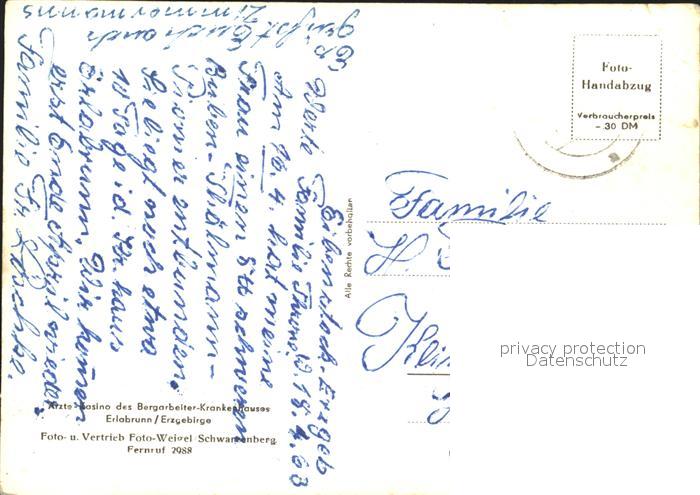 Eibenstock. Erzgeb
d. 18.4.63
Werte Familie
Am 16. 4. hat meine
Frau einen 8 tt schweren
Buben-Thälmann-
Pionier entbunden.
Sie liegt noch etwa
10 Tage i. d. Kr. haus
Erlabrunn. Wir kommen
erst Ende April wieder.
Familie
Es
grüßt Euch auch
Zimmermanns
Foto-
Handabzug
Verbraucherpreis
-.30 DM
Familie
H.
Alle Rechte vorbehalten
privacy protection
Datenschutz
Ärzte-Kasino des Bergarbeiter-Krankenhauses
Erlabrunn/Erzgebirge
Foto- u. Vertrieb Foto-Weigel Schwarzenberg
Fernruf 2988